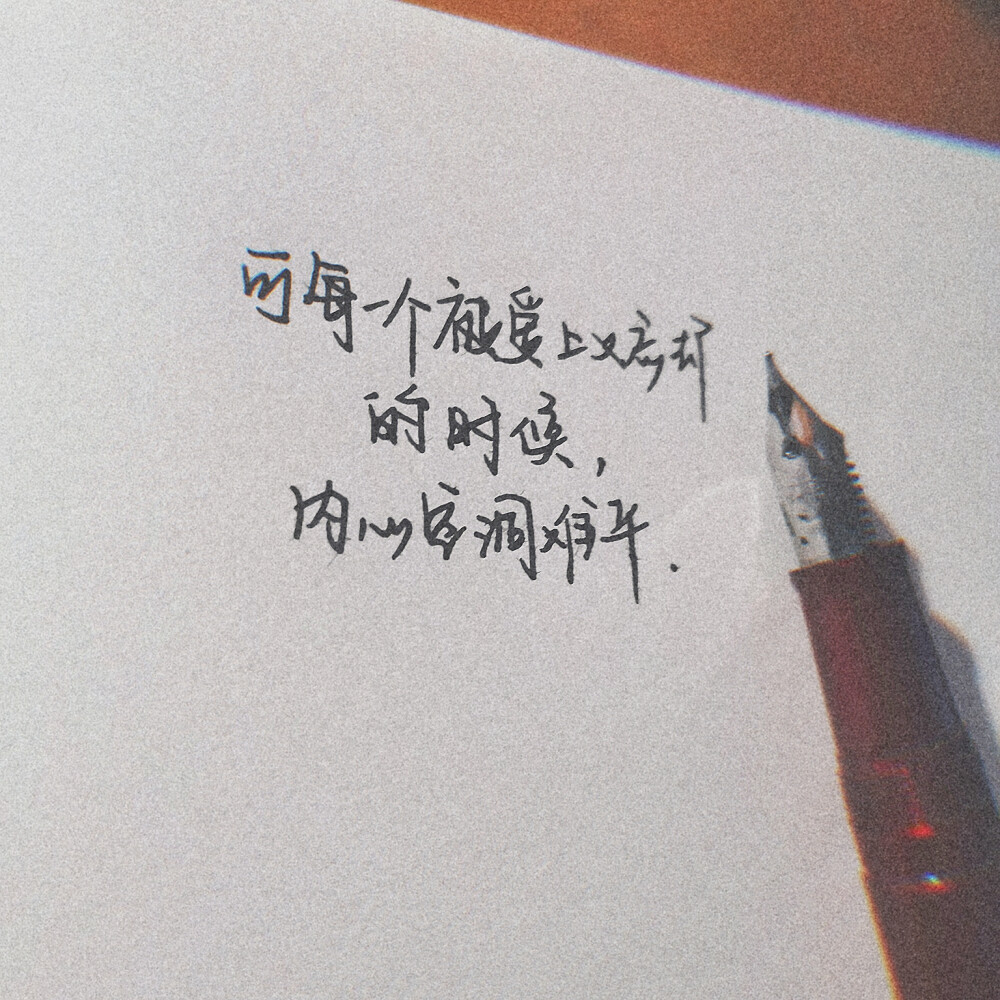 可每一个被爱上又忘却
的时候,
内心空洞难平.